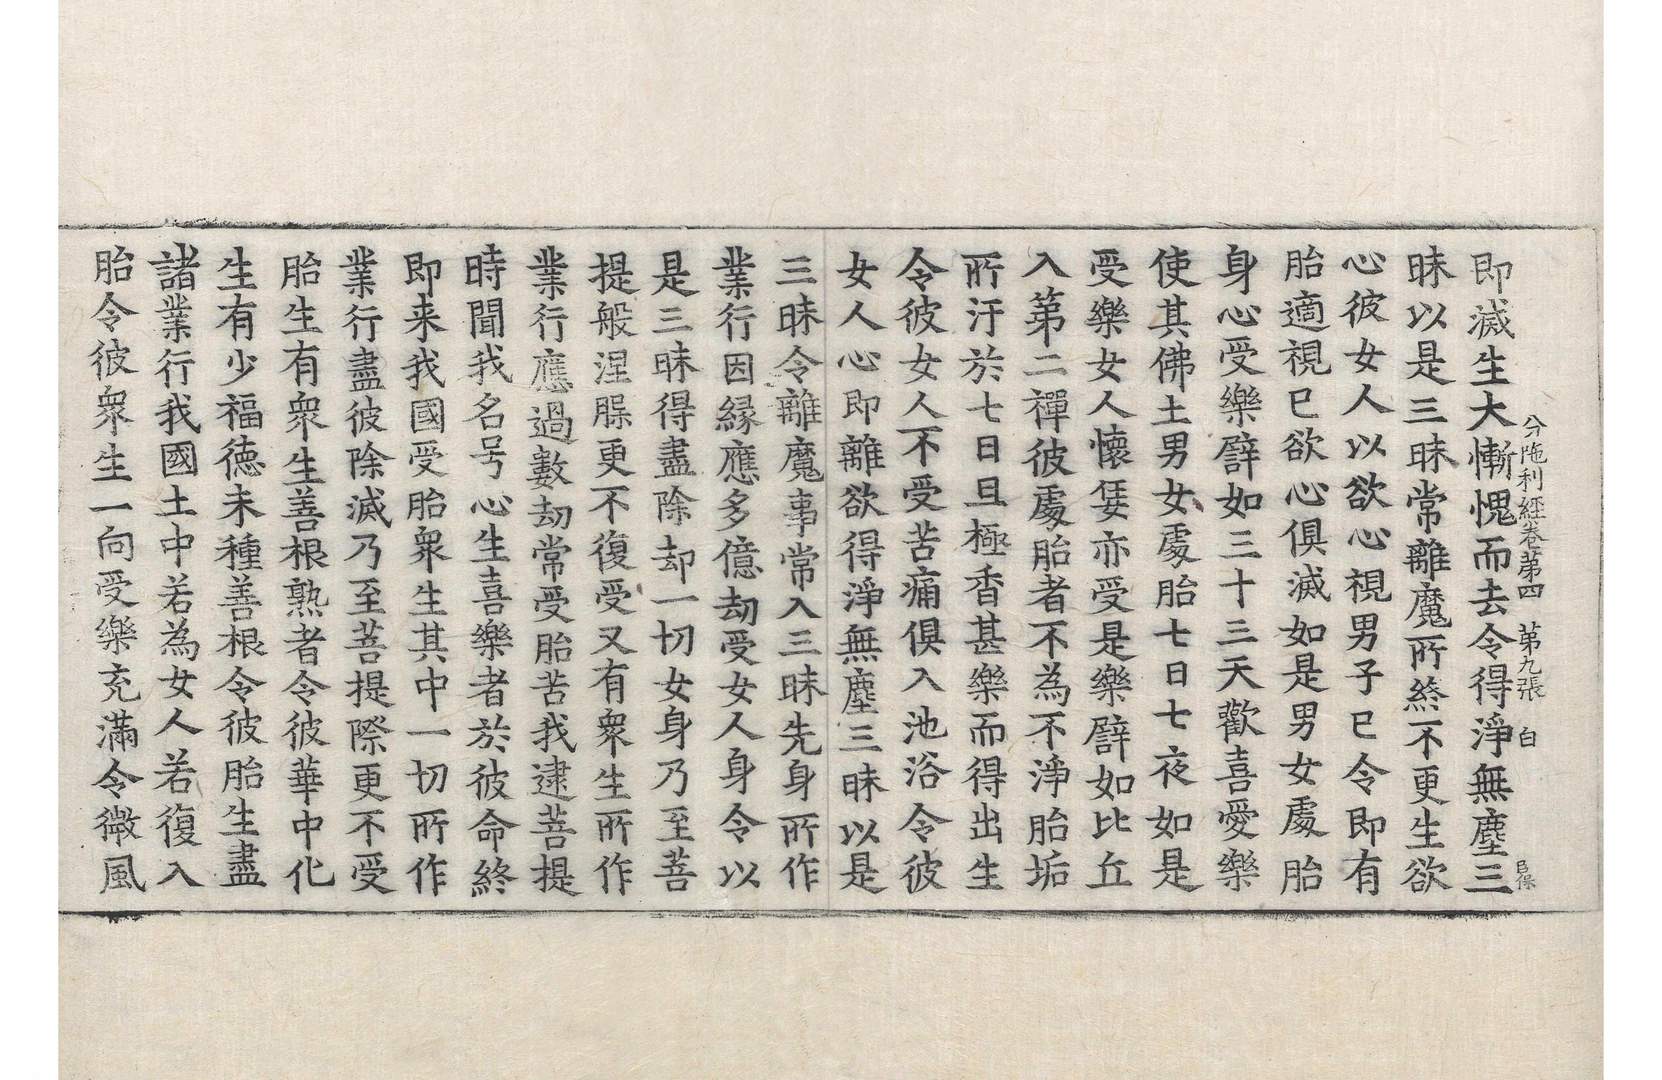 分陁利經卷第四　第九張　白
即滅生大慚愧而去令得淨無塵三
昧以是三昧常離魔所終不更生欲
心彼女人以欲心視男子已令即有
胎適視已欲心俱滅如是男女處胎
身心受樂譬如三十三天歡喜愛樂
使其佛土男女處胎七日七夜如是
受樂女人懷妊亦受是樂譬如比丘
入第二禪彼處胎者不為不淨胎垢
所汙於七日旦極香甚樂而得出生
令彼女人不受苦痛俱入池浴令彼
女人心即離欲得淨無塵三昧以是
三昧令離魔事常入三昧先身所作
業行因緣應多億劫受女人身令以
是三昧得盡除却一切女身乃至菩
提般涅腂更不復受又有眾生所作
業行應過數劫常受胎苦我逮菩提
時聞我名号心生喜樂者於彼命終
即来我國受胎眾生其中一切所作
業行盡彼除滅乃至菩提際更不受
胎生有眾生善根熟者令彼華中化
生有少福德未種善根令彼胎生盡
諸業行我國土中若為女人若復入
胎令彼眾生一向受樂充滿令微風